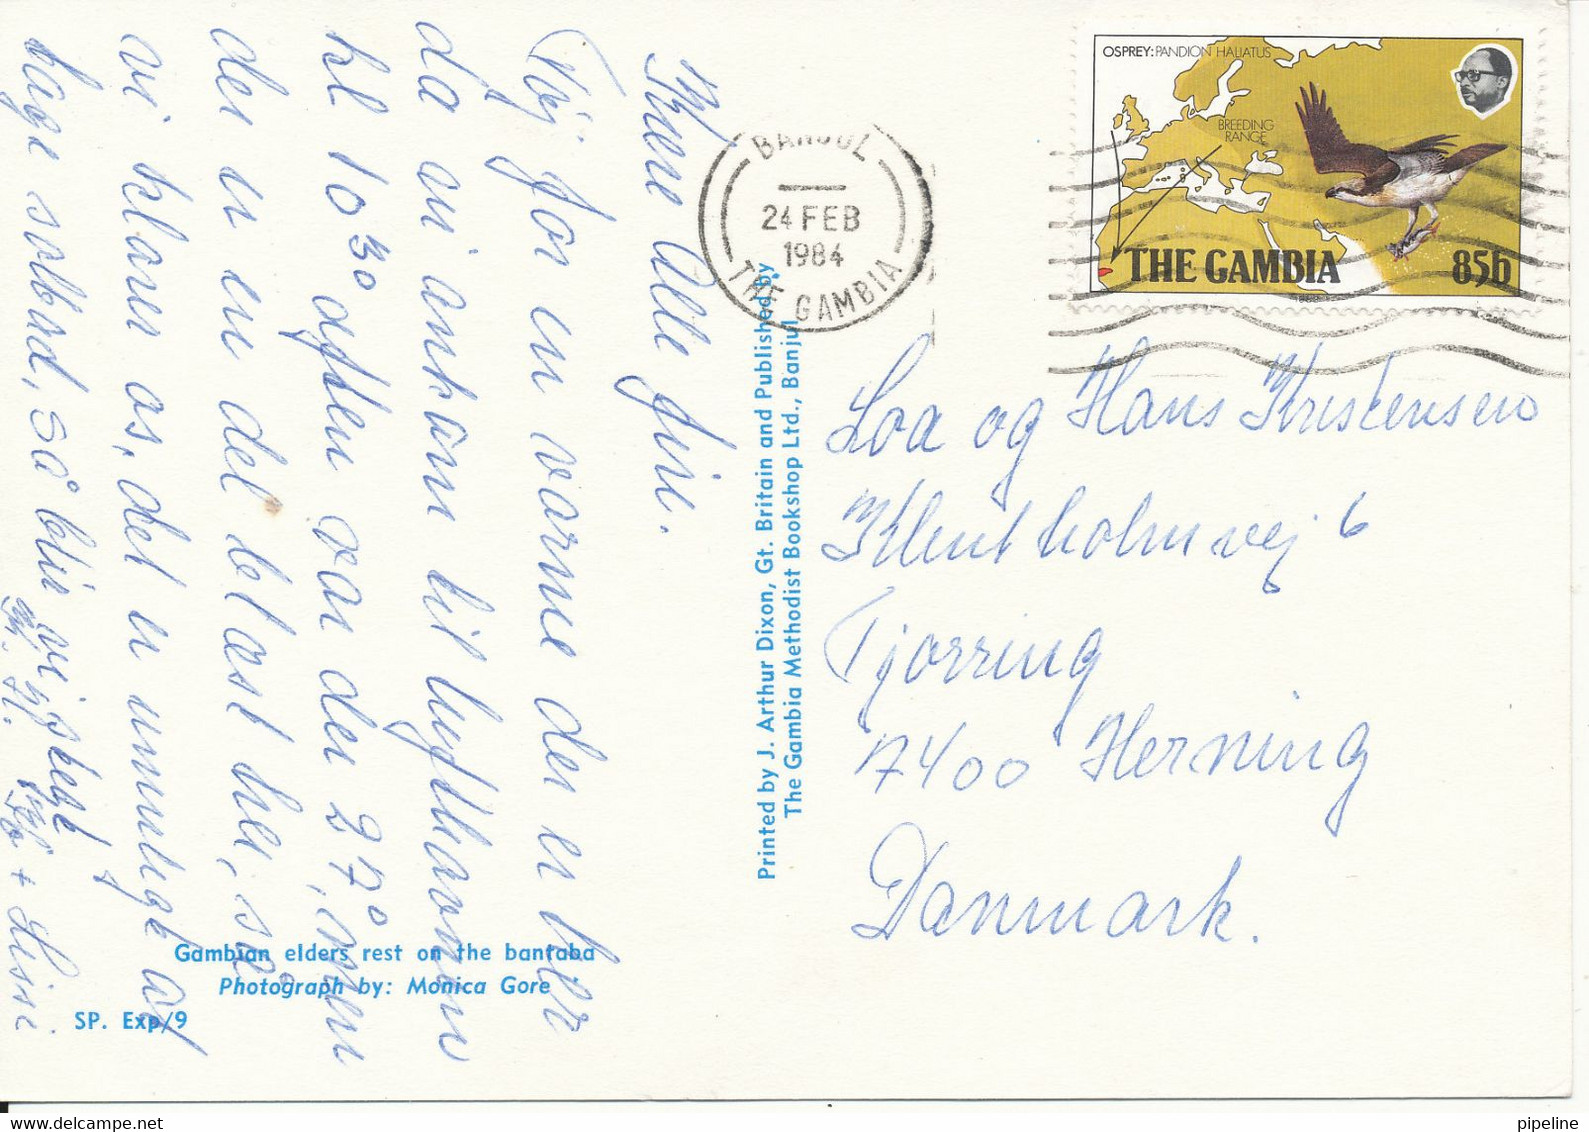 Kære Alle fire.
Føj for en varme der er her
da vi ankom til lufthavnen
kl 10³⁰ aften var der 27°, men
der er en del blæst her, så
vi klarer os, det er umuligt at
tage solbad, så blir vi stegt
Kh. + Lissi.
Gambian elders rest on the bantaba
Photograph by: Monica Gore
SP. Exp/9
Printed by J. Arthur Dixon, Gt. Britain and Published by
The Gambia Methodist Bookshop Ltd., Banjul
BANJUL
24 FEB
1984
THE GAMBIA
OSPREY: PANDION HALIATUS
BREEDING
RANGE
THE GAMBIA 85b
Loa og Hans Kristensen
Klintholmvej 6
Tjørring
7400 Herning
Danmark.
pipeline